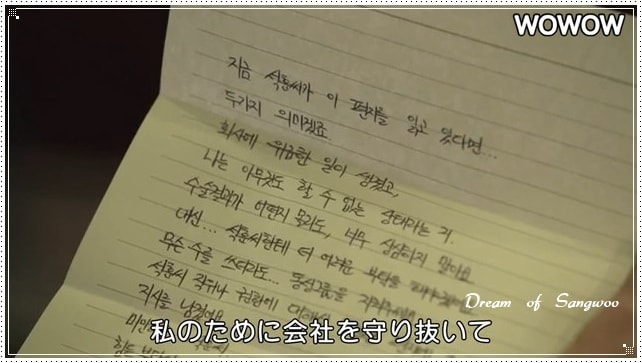 WOWOW
지금 석훈씨가 이 편지를 읽고 있다면...
두가지 의미겠죠.
회사에 위급한 일이 생겼고,
나는 아무것도 할 수 없는 상태라는 거.
수술결과가 어떤지 몰라도, 너무 상심하지 말아요
대신... 석훈씨한테 더 어려운 부탁을
무슨 수를 쓰더라도... 동성그룹을
석훈씨 직위나 권한에
지시를 남겼어요
Dream of Sangwoo
私のために会社を守り抜いて